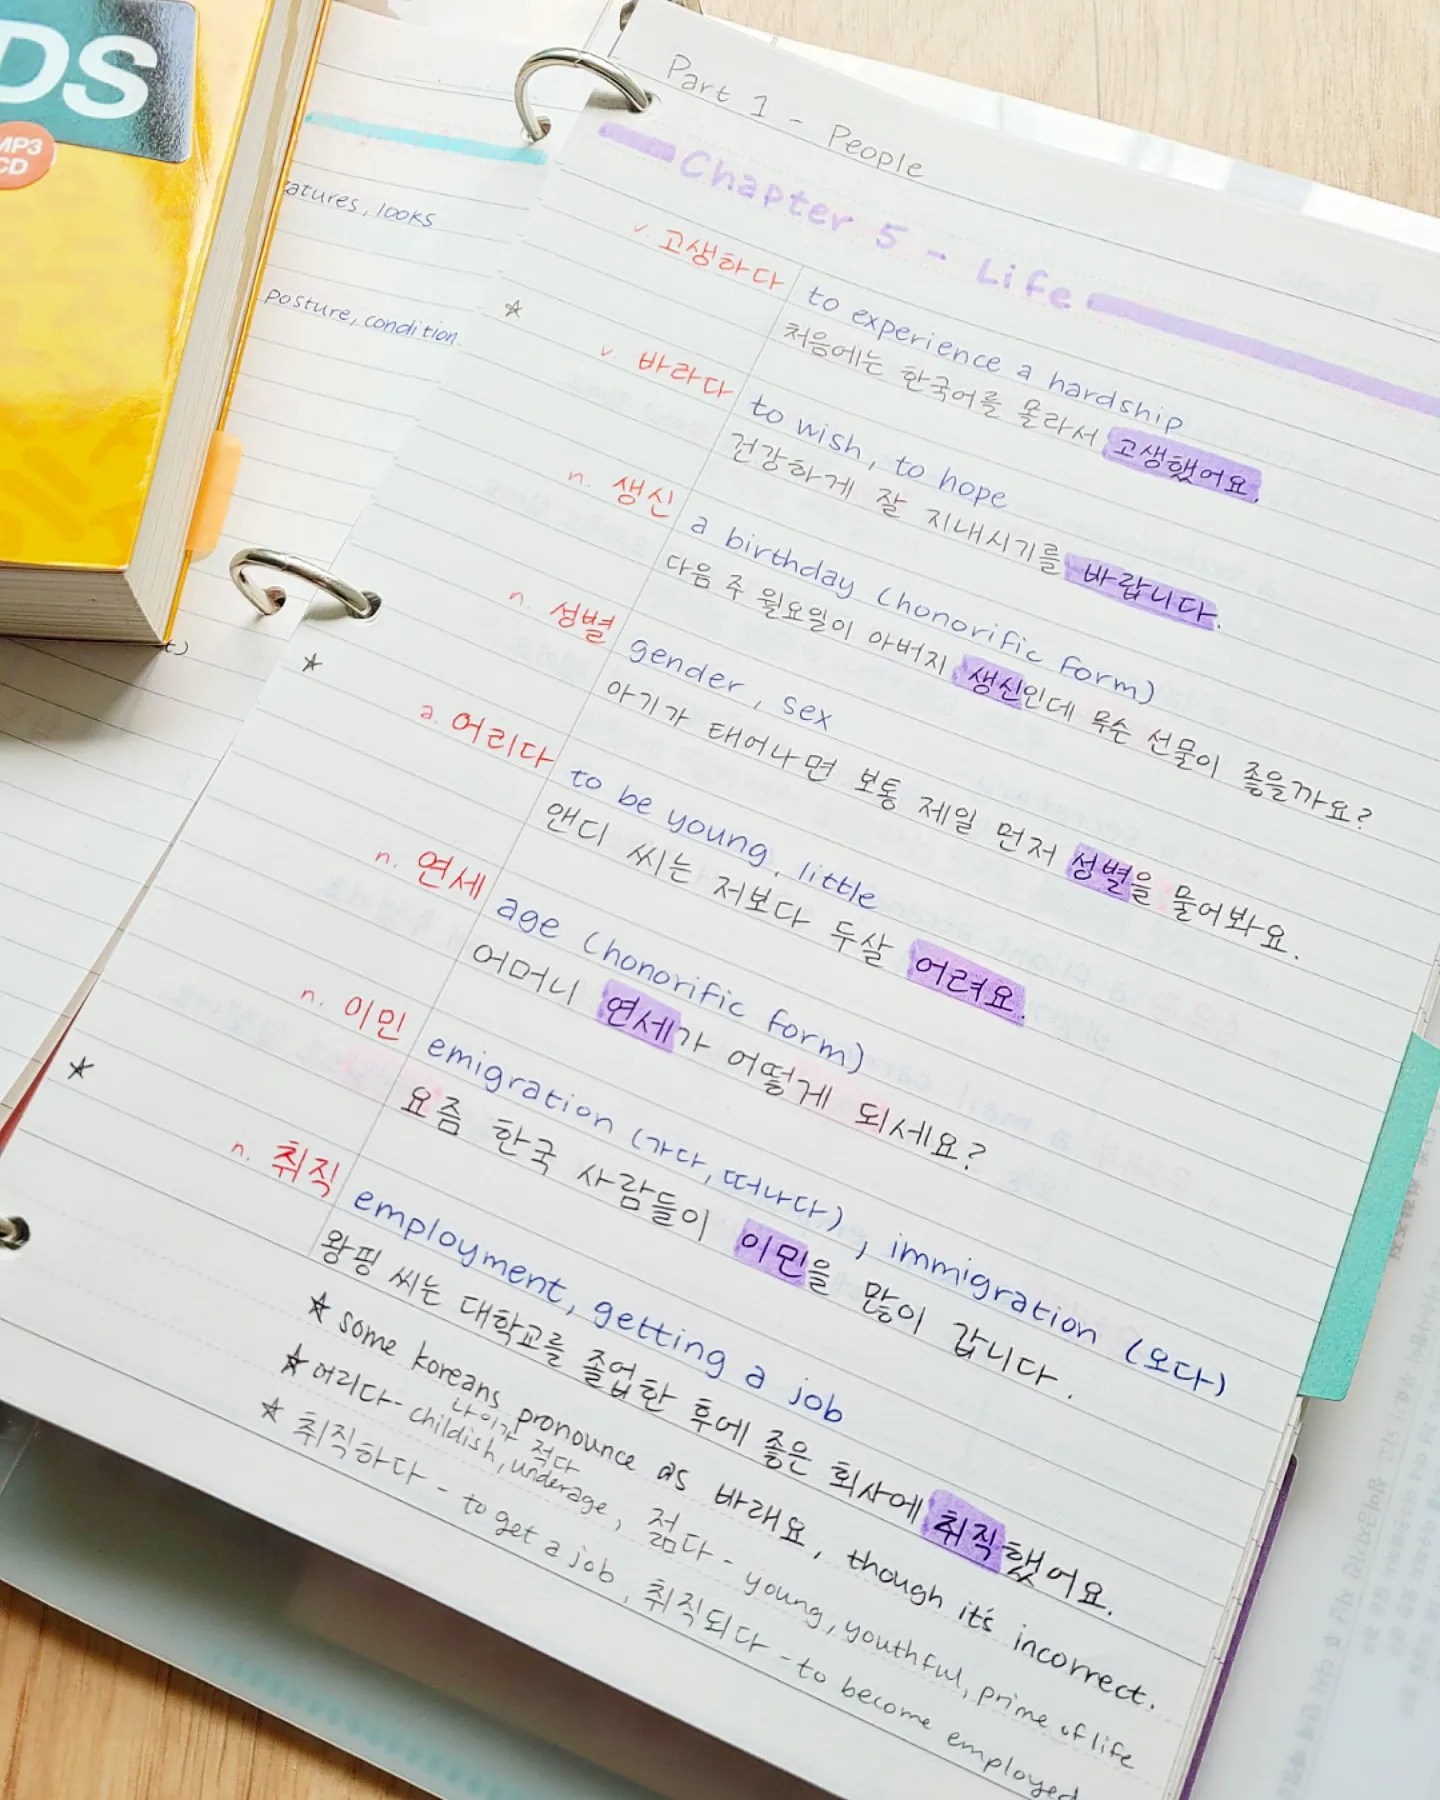 DS
MP3
CD
atures, looks
posture, condition
t)
Part 1 - People
Chapter 5 - Life
v. 고생하다
to experience a hardship
처음에는 한국어를 몰라서 고생했어요.
☆
v. 바라다
to wish, to hope
건강하게 잘 지내시기를 바랍니다.
n. 생신
a birthday (honorific form)
다음 주 월요일이 아버지 생신인데 무슨 선물이 좋을까요?
n. 성별
gender, sex
아기가 태어나면 보통 제일 먼저 성별을 물어봐요.
☆
a. 어리다
to be young, little
앤디 씨는 저보다 두살 어려요.
n. 연세
age (honorific form)
어머니 연세가 어떻게 되세요?
n. 이민
emigration (가다, 떠나다), immigration (오다)
요즘 한국 사람들이 이민을 많이 갑니다.
☆
n. 취직
employment, getting a job
왕핑 씨는 대학교를 졸업한 후에 좋은 회사에 취직했어요.
☆ some koreans pronounce as 바래요, though it's incorrect.
나이가 적다
☆ 어리다 - childish, underage, 젊다 - young, youthful, prime of life
☆ 취직하다 - to get a job, 취직되다 - to become employed